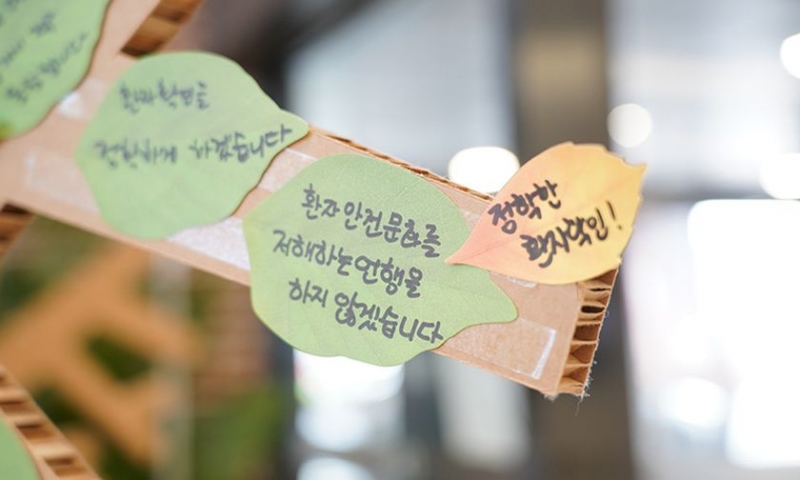 환자확인을
정확하게 하겠습니다
환자안전문화를
저해하는언행을
하지 않겠습니다
정확한
환자확인!